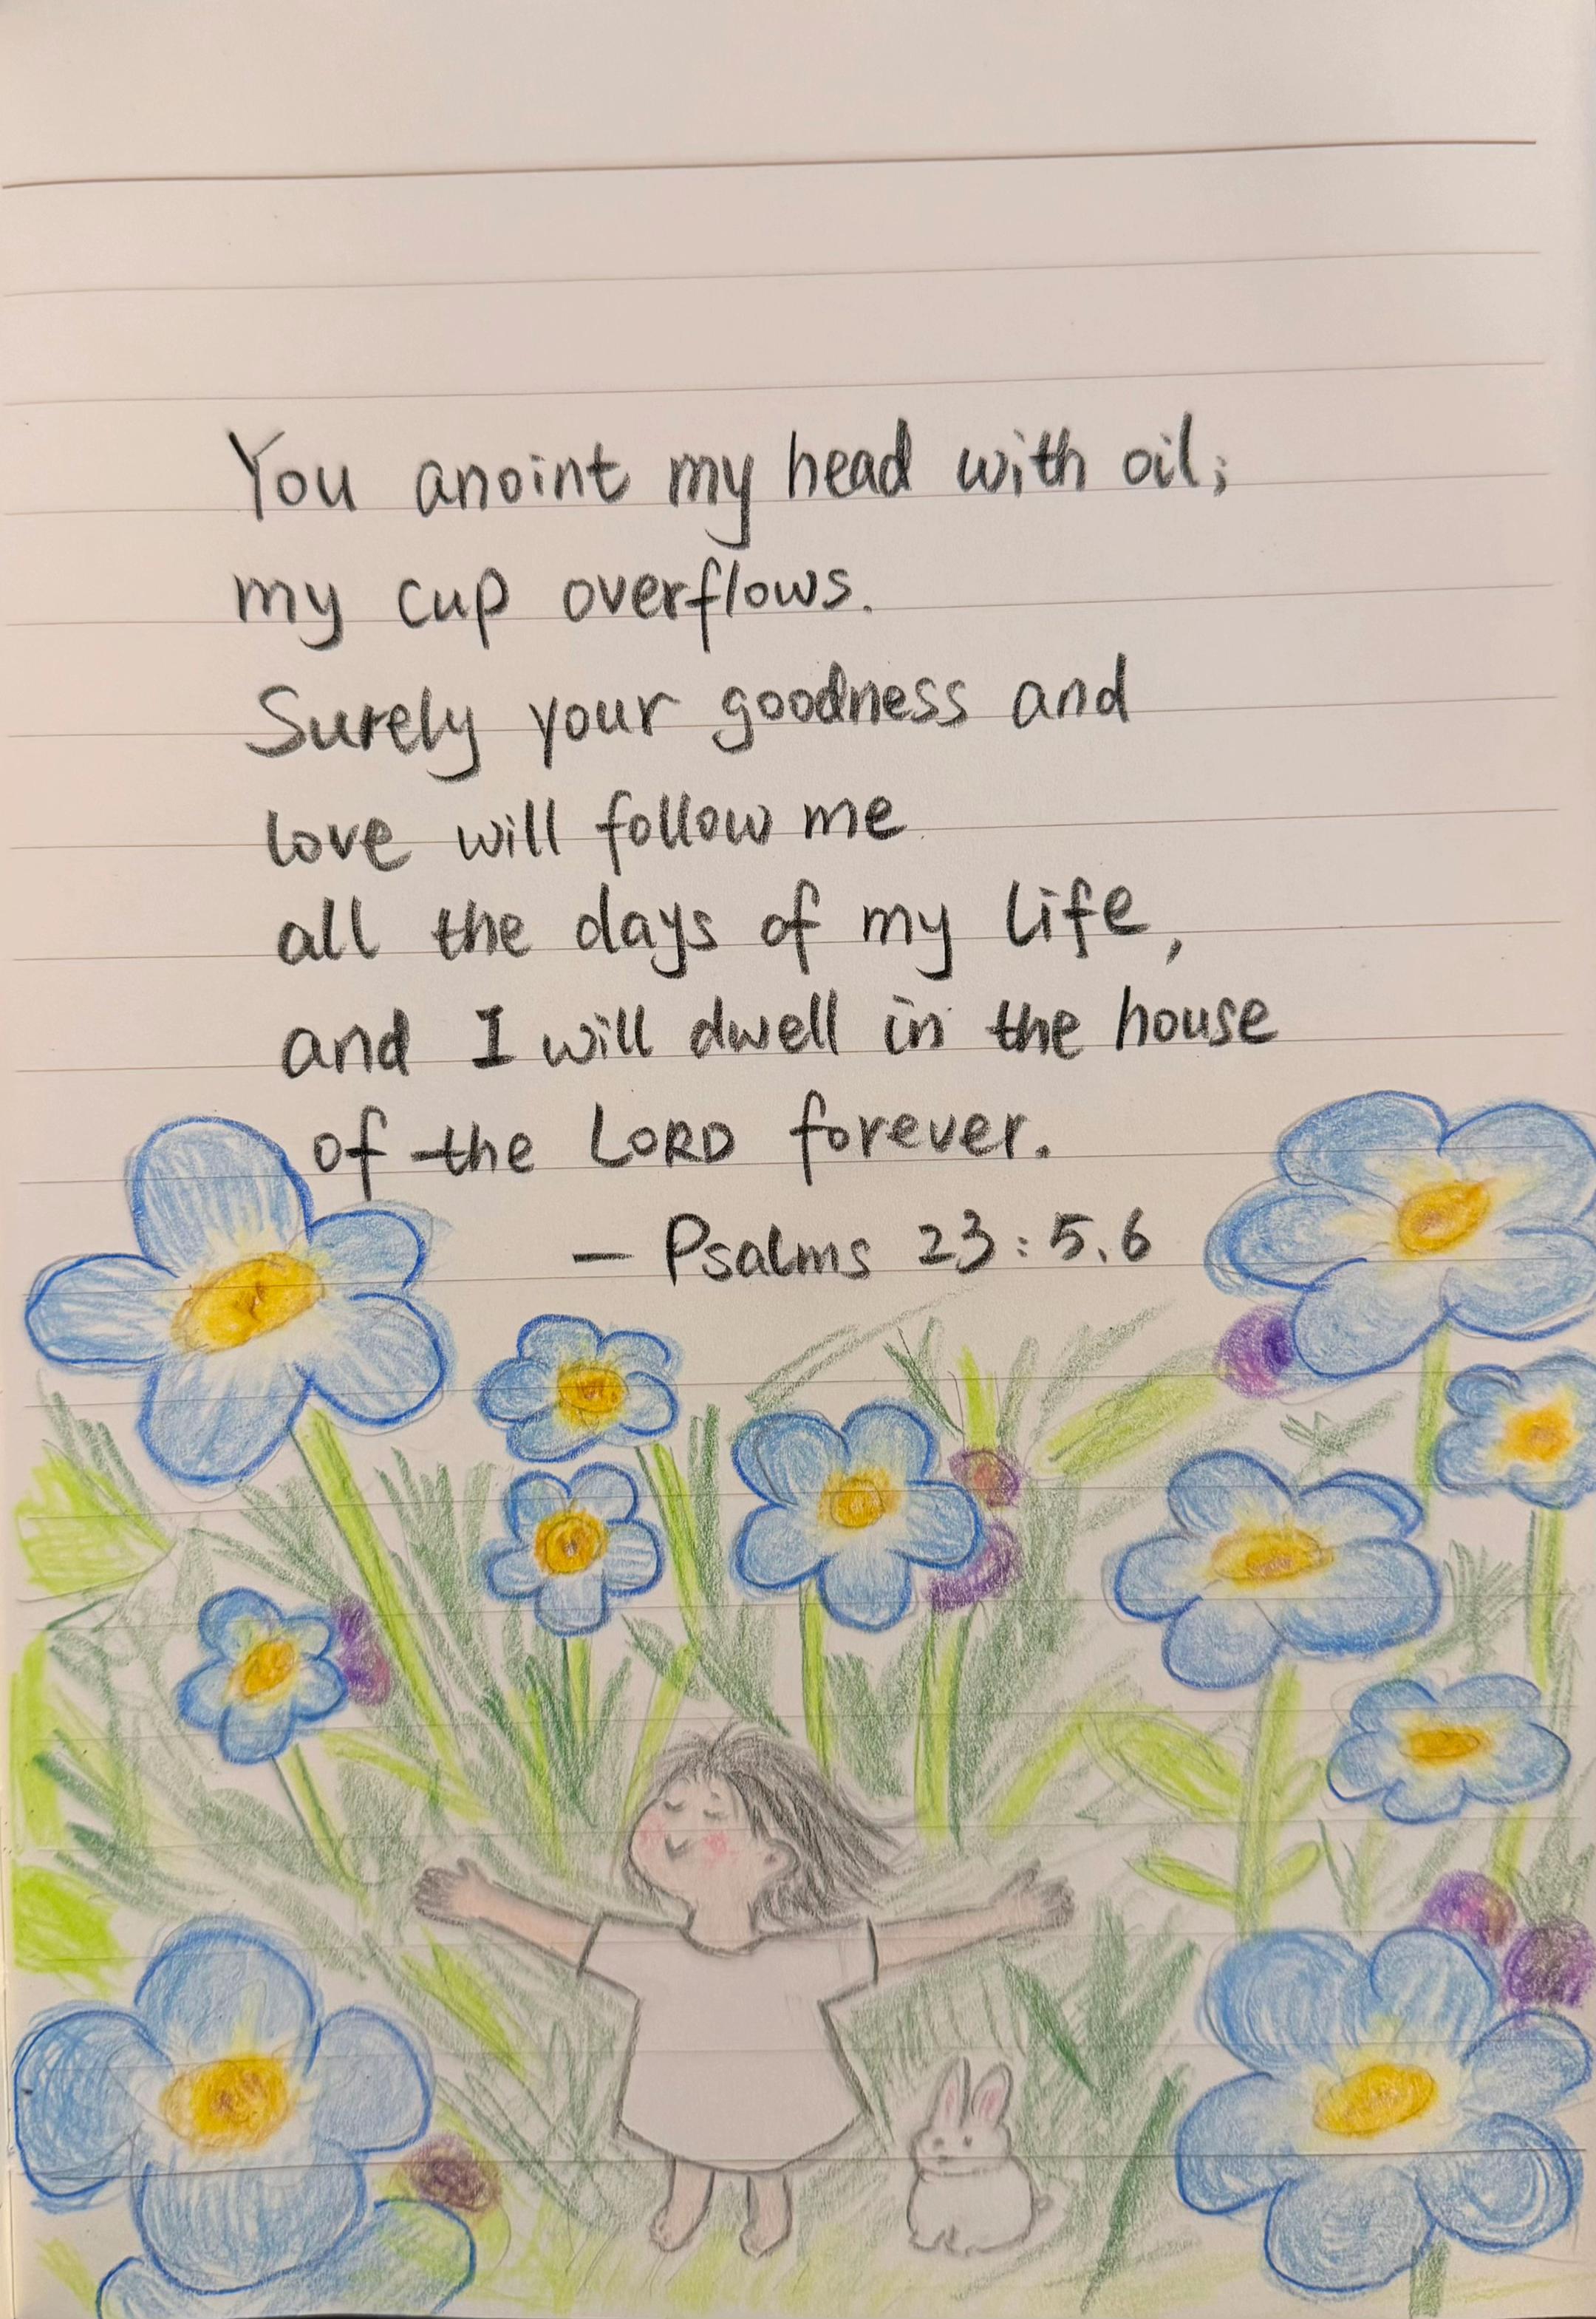 You anoint my head with oil;
my cup overflows.
Surely your goodness and
love will follow me
all the days of my life,
and I will dwell in the house
of the LORD forever.
— Psalms 23:5.6